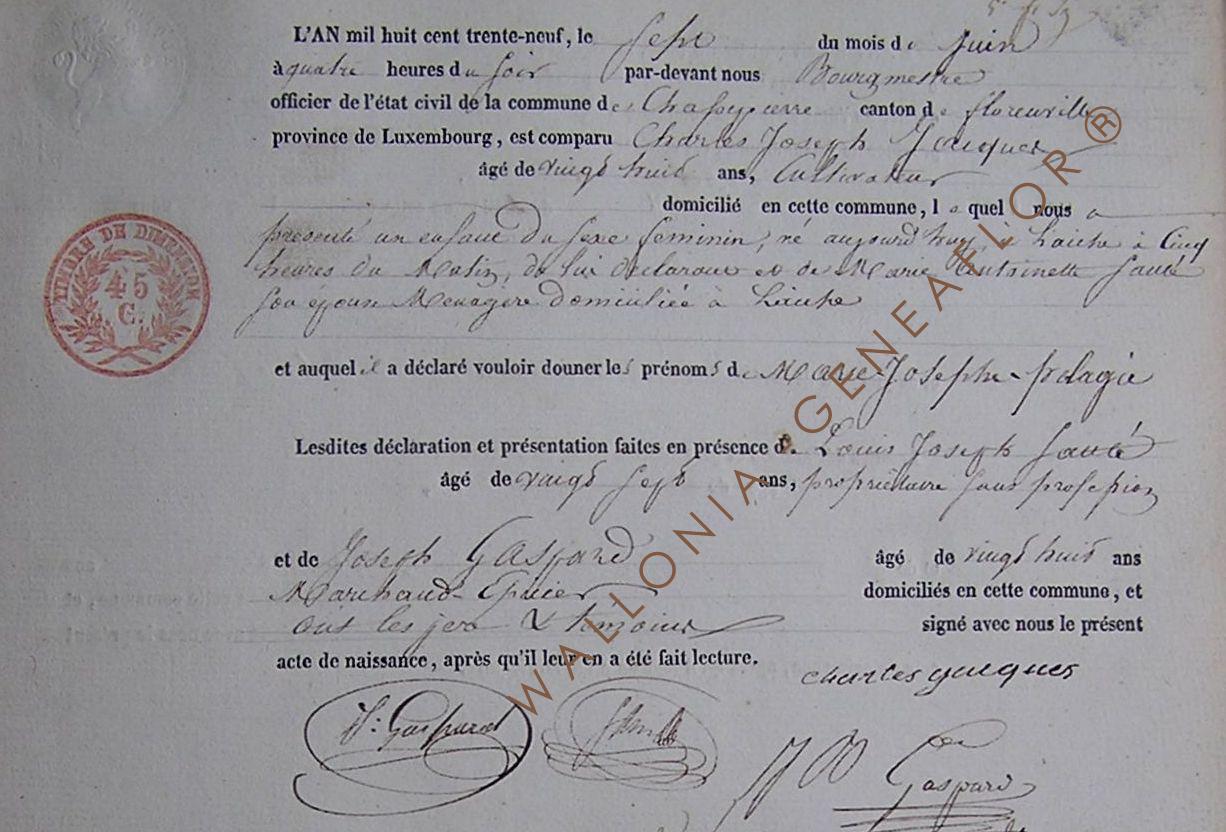 L'AN mil huit cent trente-neuf, le sept du mois de Juin
à quatre heures du soir par-devant nous Bourgmestre
officier de l'état civil de la commune de Chassepierre canton de florenville
province de Luxembourg, est comparu Charles Joseph Jacques
âgé de vingt huit ans, Cultivateur
domicilié en cette commune, lequel nous a
présenté un enfant du sexe feminin, né aujourd'huy, à Laiche à Cinq
heures du Matin, de lui déclarant et de Marie Antoinette Sauté
son épouse Menagère domiciliée à Laiche
et auquel il a déclaré vouloir donner les prénoms de Marie-Josephe-pelagie
Lesdites déclaration et présentation faites en présence de Louis Joseph Sauté
âgé de vingt sept ans, propriétaire sans profession
et de Joseph Gaspard âgé de vingt huit ans
Marchand-Epicier domiciliés en cette commune, et
ont les père & témoins signé avec nous le présent
acte de naissance, après qu'il leur en a été fait lecture.
charles jacques
J: Gaspard
Gaspard
TIMBRE DE DIMENSION
45
C.
WALLONIA GENEAFLOR ®